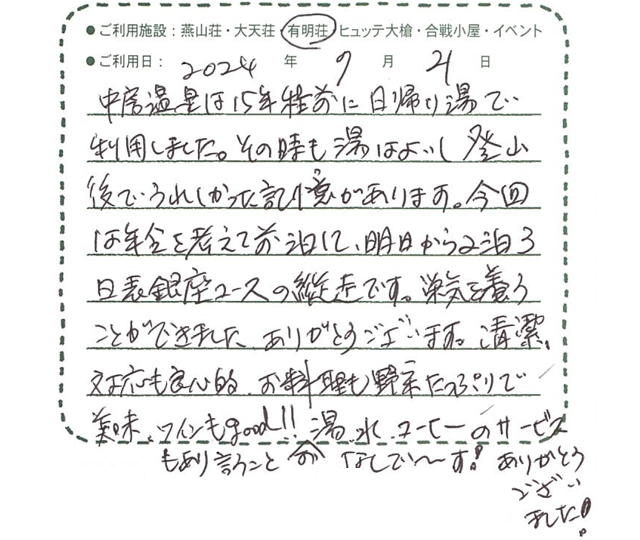 ●ご利用施設：燕山荘・大天荘・有明荘・ヒュッテ大槍・合戦小屋・イベント
●ご利用日： 2024 年 9 月 21 日
中房温泉は15年程前に日帰り湯で
利用しました。その時も湯はよいし登山
後でうれしかった記憶があります。今回
は年令を考えてお泊にて、明日から2泊3
日表銀座コースの縦走です。英気を養う
ことができました ありがとうございます。清潔、
対応も良心的、お料理も野菜たっぷりで
美味、ワインもgood!! 湯、水、コーヒーのサービス
もあり言うことがなしで〜す! ありがとう
ござい
ました!